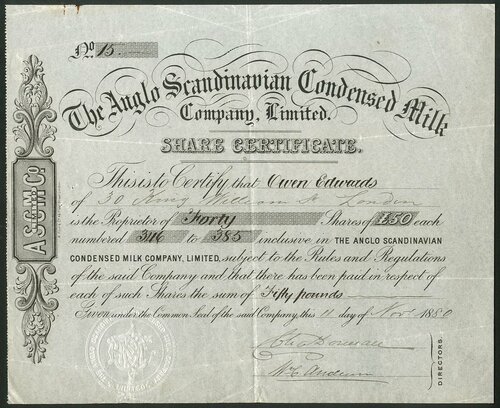 No. 15
The Anglo Scandinavian Condensed Milk
Company, Limited.
SHARE CERTIFICATE.
This is to Certify that Owen Edwards
of 30 King William St London
is the Proprietor of Forty Shares of £50 each
numbered 346 to 385 inclusive in THE ANGLO SCANDINAVIAN
CONDENSED MILK COMPANY, LIMITED, subject to the Rules and Regulations
of the said Company and that there has been paid in respect of
each of such Shares the sum of Fifty pounds
Given under the Common Seal of the said Company, this 11 day of Nov. 1880
DIRECTORS.
A.S.C.M. Co.